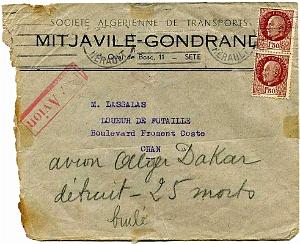 SOCIÉTÉ ALGÉRIENNE DE TRANSPORTS
MITJAVILE-GONDRAND
Quai de Bosc, 11 - SETE
HERAULT
1F50
1F50
Avion
M. LASSALAS
LOUEUR DE FUTAILLE
Boulevard Froment Coste
ORAN
avion Alger Dakar
détruit - 25 morts
brulé